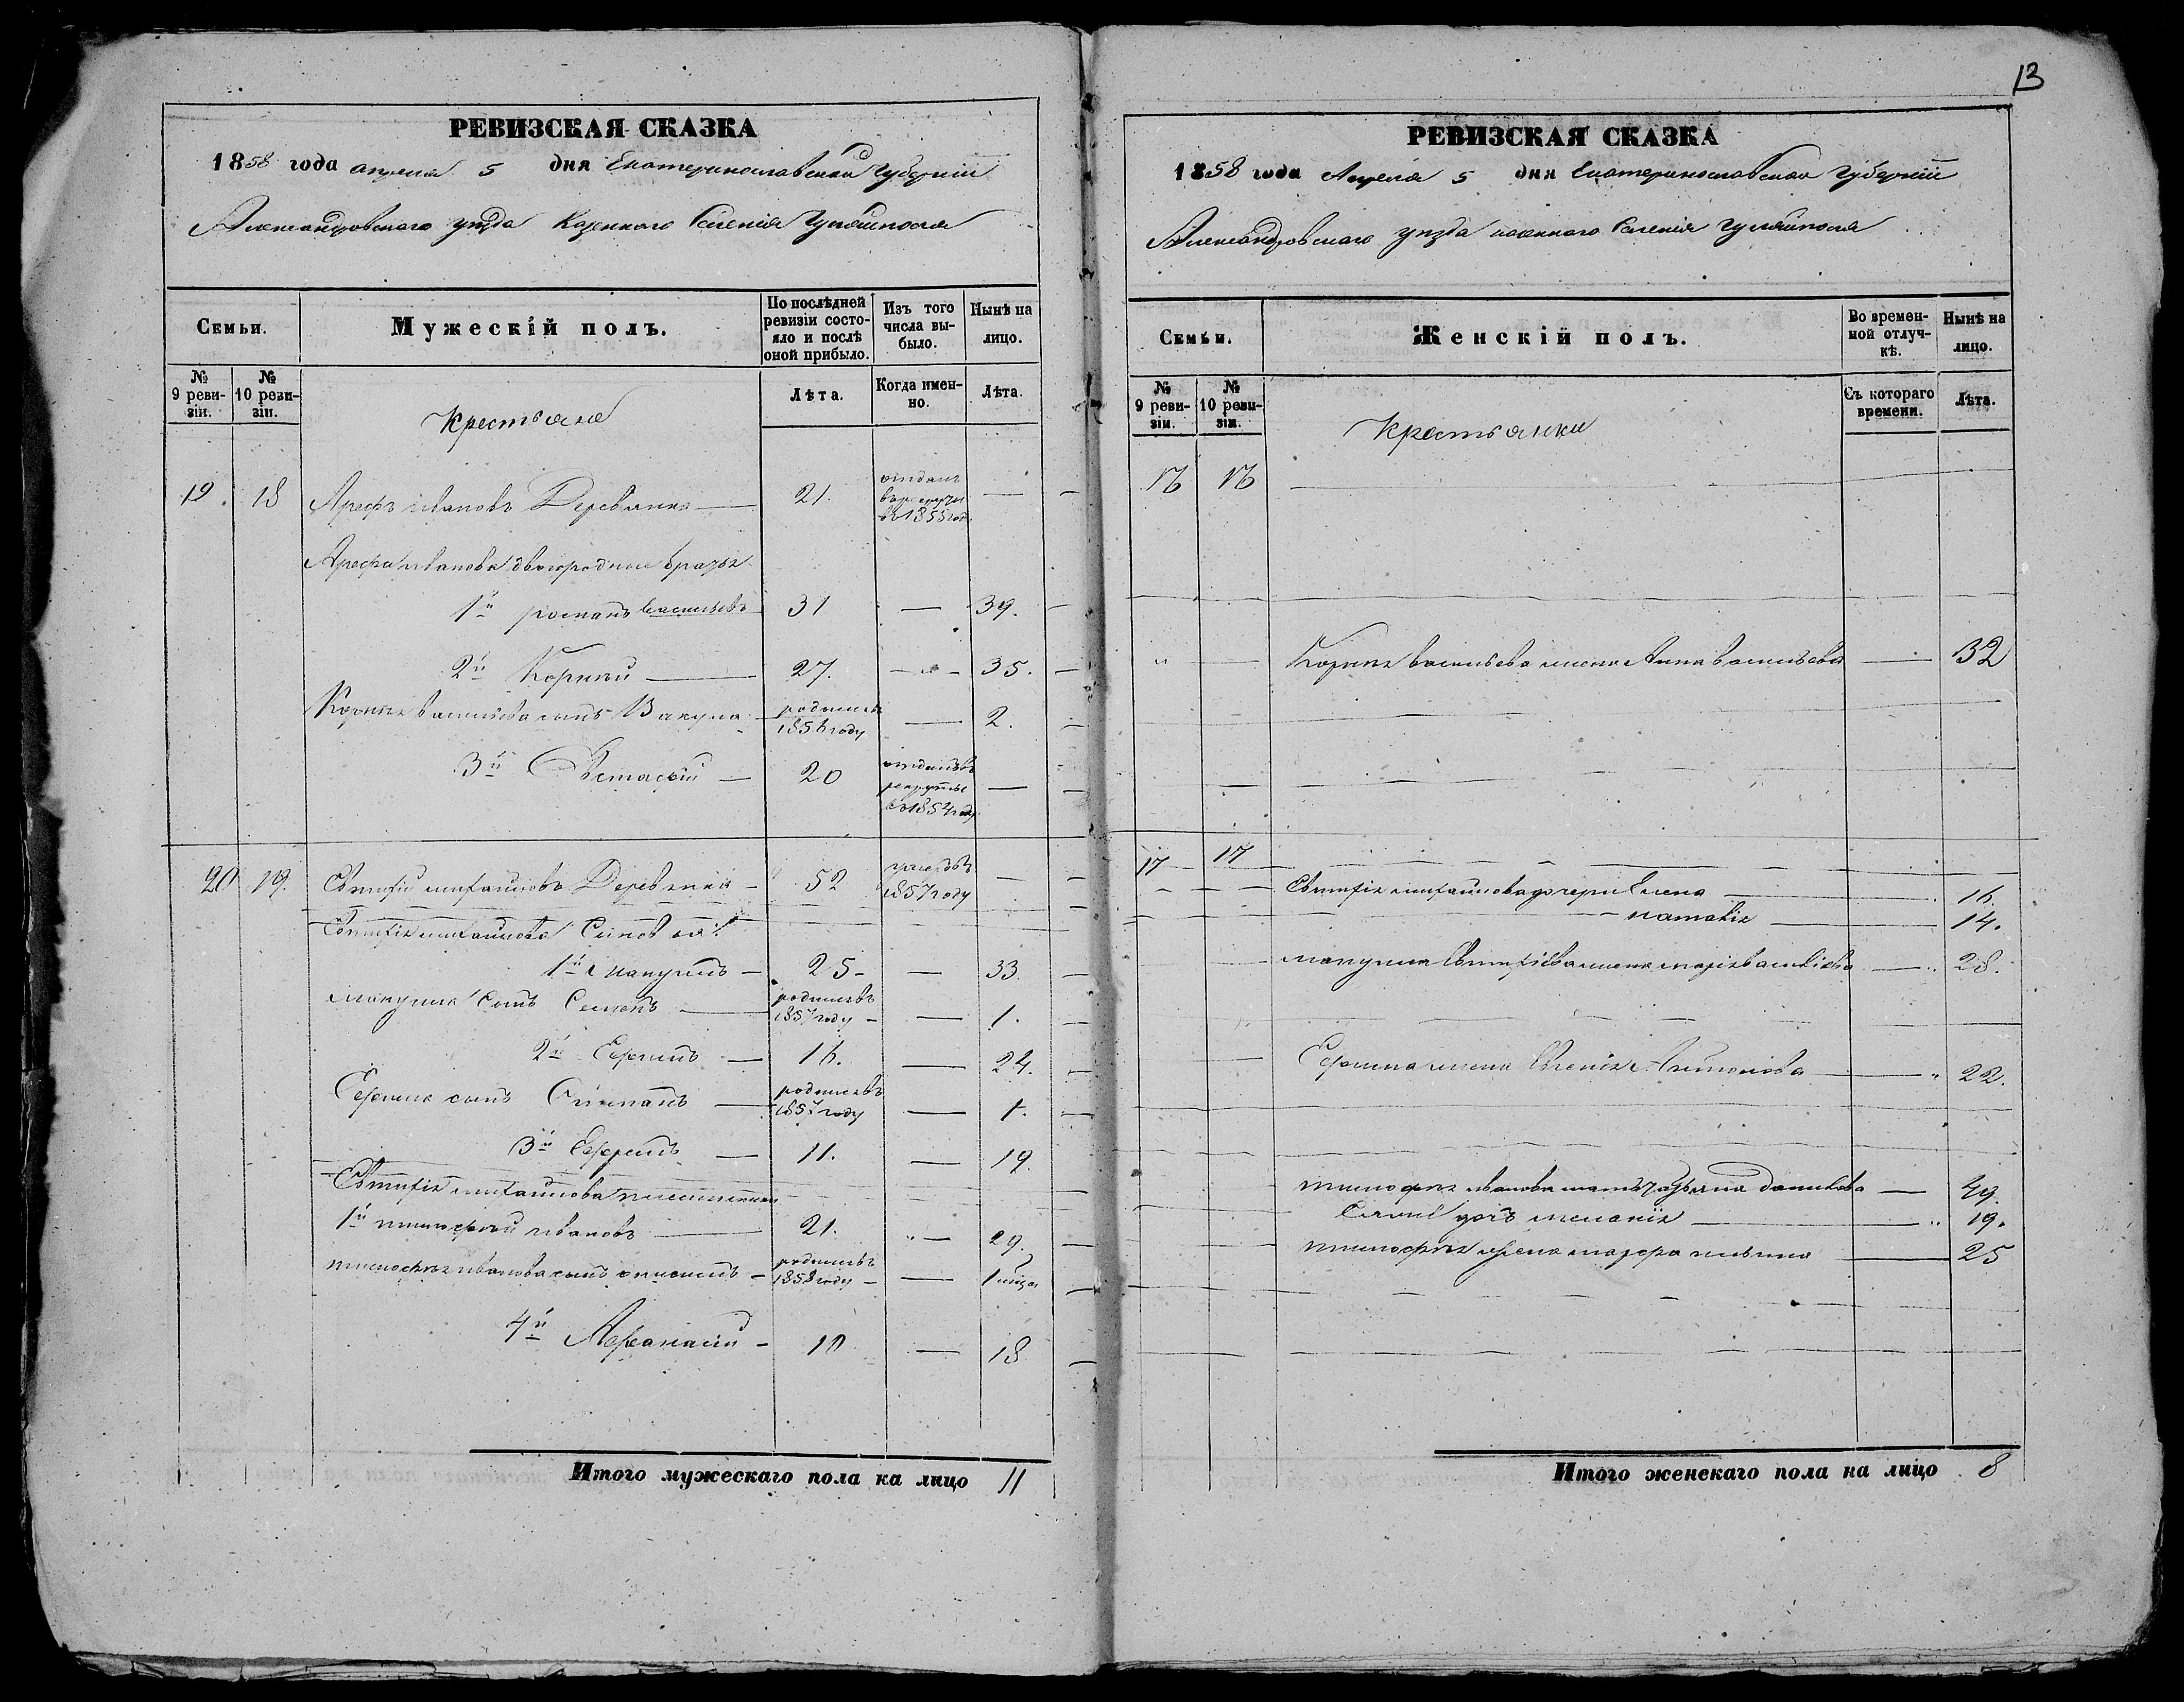 13
РЕВИЗСКАЯ СКАЗКА
1858 года апреля 5 дня Екатеринославской губернии
Александровского уезда Казенного Селения Гуляйполя
Семьи.
Мужескій полъ.
По послѣдней ревизіи состояло и послѣ оной прибыло.
Изъ того числа выбыло.
Нынѣ на лицо.
№ 9 ревизіи.
№ 10 ревизіи.
Крестьяне
Лѣта.
Когда именно.
Лѣта.
19. 18 Арефъ Ивановъ Деревянко — 21. отданъ в рекруты въ 1855 год. —
Арефа Иванова двоюродные братья
1й романъ Васильевъ 31 — 39.
2й Корнѣй — 27. — 35.
Корнѣя Васильева сынъ Вакула — родился 1856 году — 2.
3й Евстафій — 20 отданъ въ рекруты въ 1854 году —
20 19. Евтифій михайловъ Деревянко — 52 умре въ 1857 году —
Евтифія михайлова Сыновья:
1й макумъ — 25 — 33.
сынъ Семенъ — родился въ 1857 году — 1.
2й Ефимъ — 16. — 24.
Ефима сынъ Степанъ — родился въ 1857 году — 1.
3й Ефремъ — 11. — 19.
Евтифія михайлова племянники
1й тимофей ивановъ — 21. — 29.
тимофея иванова сынъ — родился въ 1858 году — 1 мца
4й Афанасій — 10 — 18
Итого мужескаго пола на лицо 11
РЕВИЗСКАЯ СКАЗКА
1858 года Апреля 5 дня Екатеринославской губернии
Александровского уезда казенного Селения гуляйполя
Семьи.
Женскій полъ.
Во временной отлучкѣ.
Нынѣ на лицо.
№ 9 ревизіи.
№ 10 ревизіи.
Крестьянки
Съ котораго времени.
Лѣта.
16 16
Корнѣя васильева жена Анна васильева — 32
17 17
Евтифія михайлова дочери Елена — 16.
наталія — 14.
Евтифіева жена марія — 28.
Ефима жена Евгенія Антонова — 22.
тимофея иванова мать — 49.
дочъ меланія — 19.
тимофея жена — 25
Итого женскаго пола на лицо 8